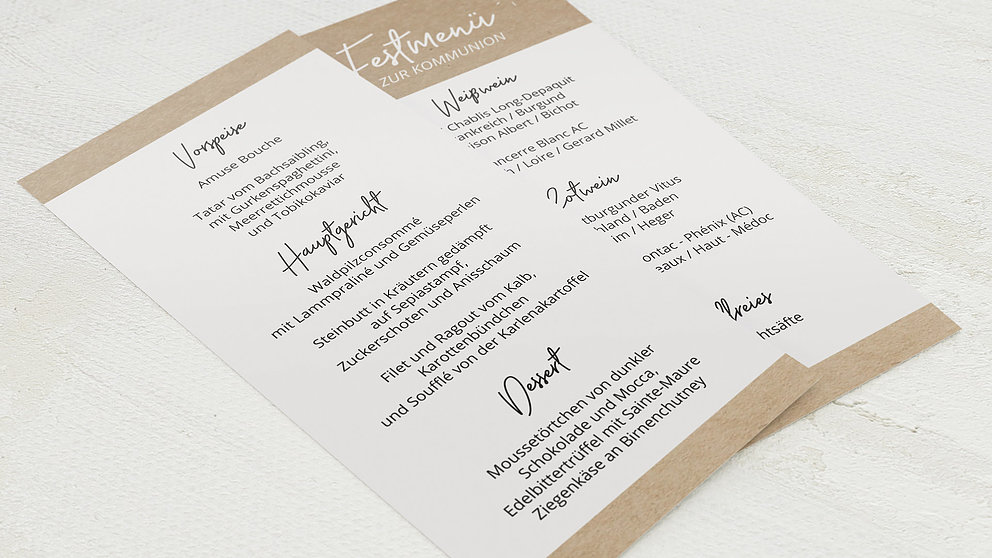 Vorspeise
Amuse Bouche
Tatar vom Bachsaibling,
mit Gurkenspaghettini,
Meerrettichmousse
und Tobikokaviar
Hauptgericht
Waldpilzconsommé
mit Lammpraliné und Gemüseperlen
Steinbutt in Kräutern gedämpft
auf Sepiastampf,
Zuckerschoten und Anisschaum
Filet und Ragout vom Kalb,
Karottenbündchen
und Soufflé von der Karlenakartoffel
Dessert
Moussetörtchen von dunkler
Schokolade und Mocca,
Edelbittertrüffel mit Sainte-Maure
Ziegenkäse an Birnenchutney
Festmenü
ZUR KOMMUNION
Weißwein
Chablis Long-Depaquit
ankreich / Burgund
ison Albert / Bichot
ncerre Blanc AC
/ Loire / Gerard Millet
Rotwein
tburgunder Vitus
hland / Baden
im / Heger
ontac - Phénix (AC)
eaux / Haut - Médoc
freies
htsäfte